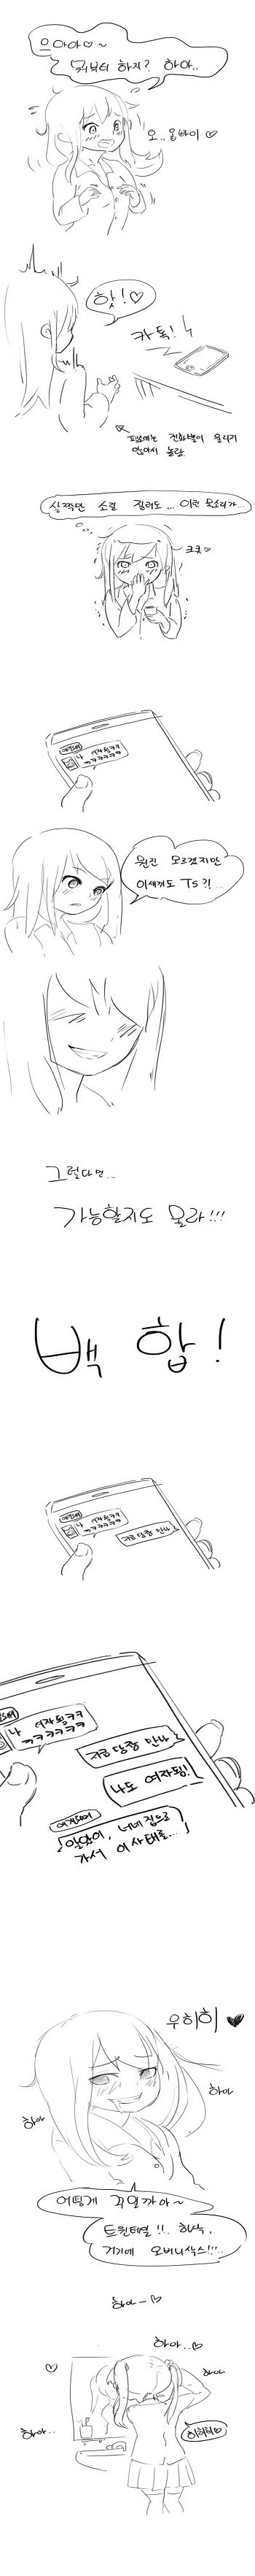 으아아♡~
뭐부터 하지? 하아..
오..옴바이♡
핫!♡
카톡!
평소에는 전화벨이 울리기
않아서 놀람
살짝만 소릴 질러도... 이런 목소리가...
크큿♡
나 여자됨ㅋㅋ
ㅋㅋㅋㅋㅋㅋ
뭔진 모르겠지만
이새끼도 TS?!...
그렇다면..
가능할지도 몰라!!!
백합!
나 여자됨ㅋㅋ
ㅋㅋㅋㅋㅋㅋ
지금 당장 만나
나 여자됨ㅋㅋ
ㅋㅋㅋㅋㅋㅋ
지금 당장 만나
나도 여자됨!
알았어, 너네 집으로
가서 이 사태를...
우히히♥
하아
하아
어떻게 꾸밀까아~
트윈테일!!. 히힉.
거기에 오버니삭스!!...
하아-♡
하아..♡
♡
하아
하아..
히히히♡